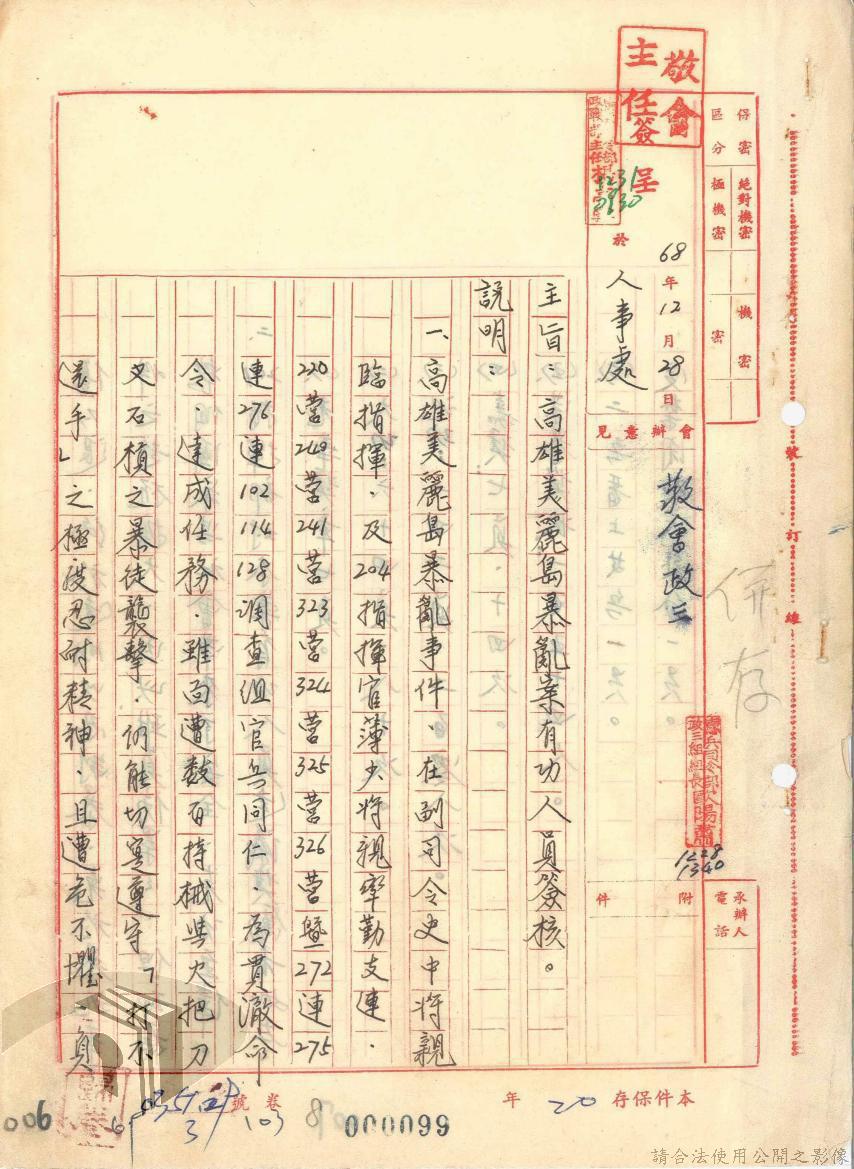 保密區分
絕對機密
極機密
機密
密
承辦人
電話
敬會
主任
簽呈
於
68年12月28日
人事處
會辦意見
敬會政三
1228
1340
併存
附件
裝訂線
1231
0930
主旨：高雄美麗島暴亂案有功人員簽核。
說明：
一、高雄美麗島暴亂事件、在副司令史中將親
臨指揮、及204指揮官薄少將親率勤支連、
220營249營241營323營324營325營326營暨272連275
連276連102 114 128調查組官兵同仁、為貫澈命
令、達成任務、雖面遭數百持械與火把刀
叉石楨之暴徒襲擊、仍能切實遵守「打不
還手」之極度忍耐精神、且遭危不懼、負
本件保存20年
卷103號
8
000099
006
請合法使用公開之影像